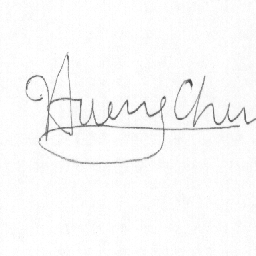 Hueng Chu